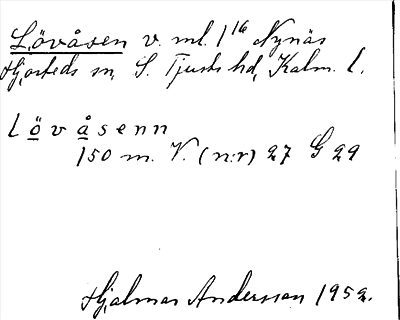 Lövåsen v. ml. 1¹⁶ Nynäs
Hjorteds sn, S. Tjusts hd, Kalm. l.
Lövåsenn
150 m. V. (n:r) 27 G 29
Hjalmar Andersson 1952.